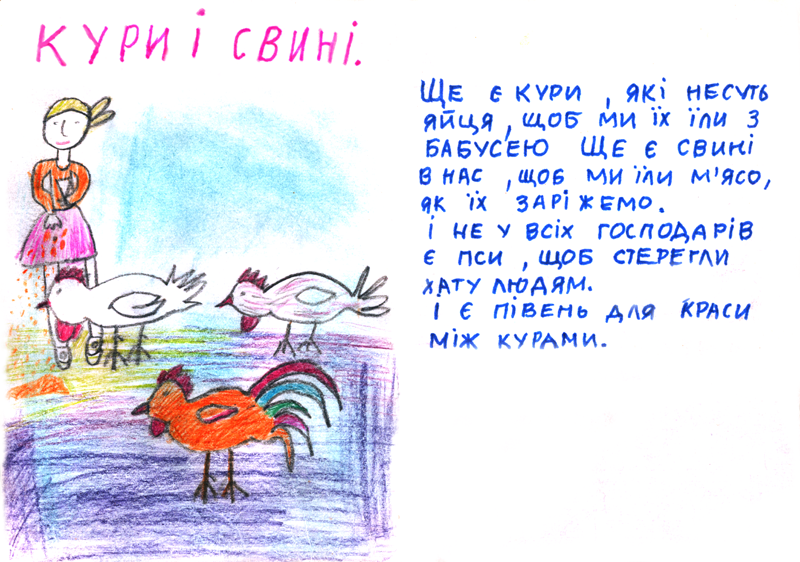 КУРИ І СВИНІ.
ЩЕ Є КУРИ , ЯКІ НЕСУТЬ
ЯЙЦЯ , ЩОБ МИ ЇХ ЇЛИ З
БАБУСЕЮ ЩЕ Є СВИНІ
В НАС , ЩОБ МИ ЇЛИ М'ЯСО,
ЯК ЇХ ЗАРІЖЕМО.
І НЕ У ВСІХ ГОСПОДАРІВ
Є ПСИ , ЩОБ СТЕРЕГЛИ
ХАТУ ЛЮДЯМ.
І Є ПІВЕНЬ ДЛЯ КРАСИ
МІЖ КУРАМИ.